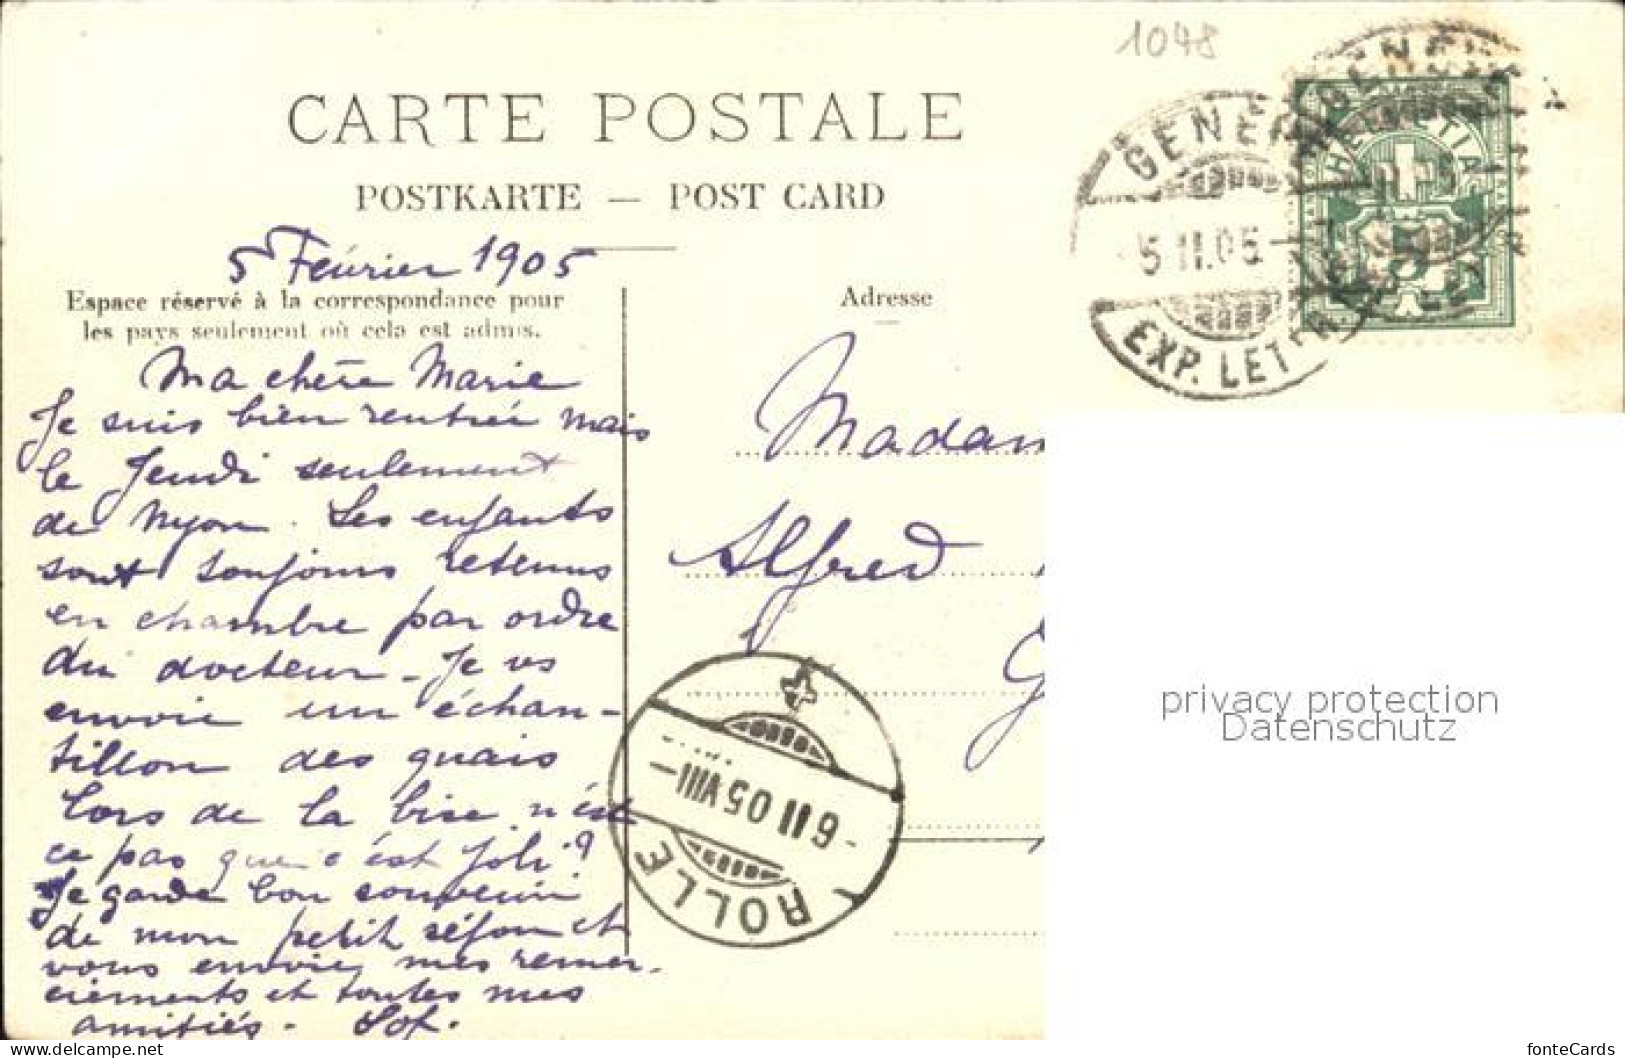 1048
CARTE POSTALE
POSTKARTE — POST CARD
5 Février 1905
Espace réservé à la correspondance pour
les pays seulement où cela est admis.
Adresse
GENÈVE
5.II.05
EXP. LETTR.
GENÈVE
HELVETIA
5
Ma chère Marie
Je suis bien rentrée mais
le Jeudi seulement
de Nyon. Les enfants
sont toujours retenus
en chambre par ordre
du docteur - Je vs
envoie un échan-
tillon des quais
lors de la bise n'est
ce pas que c'est joli?
Je garde bon souvenir
de mon petit séjour et
vous envoie mes remer-
ciements et toutes mes
amitiés.
Madam
Alfred
G
6 II 05 VIII—
ROLLE
privacy protection
Datenschutz
www.delcampe.net
fonteCards